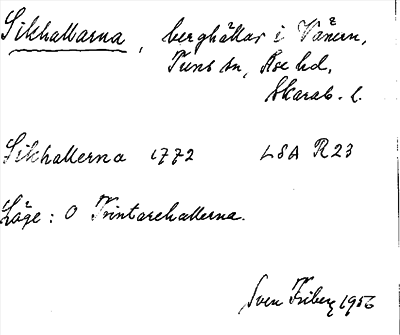 Sikhallarna, berghällar i Vänern,
Tuns sn, Åse hd,
Skarab. l.
Sikhallerna 1772 LSA R23
Läge: O Trintarehallerna.
Sven Friberg 1956